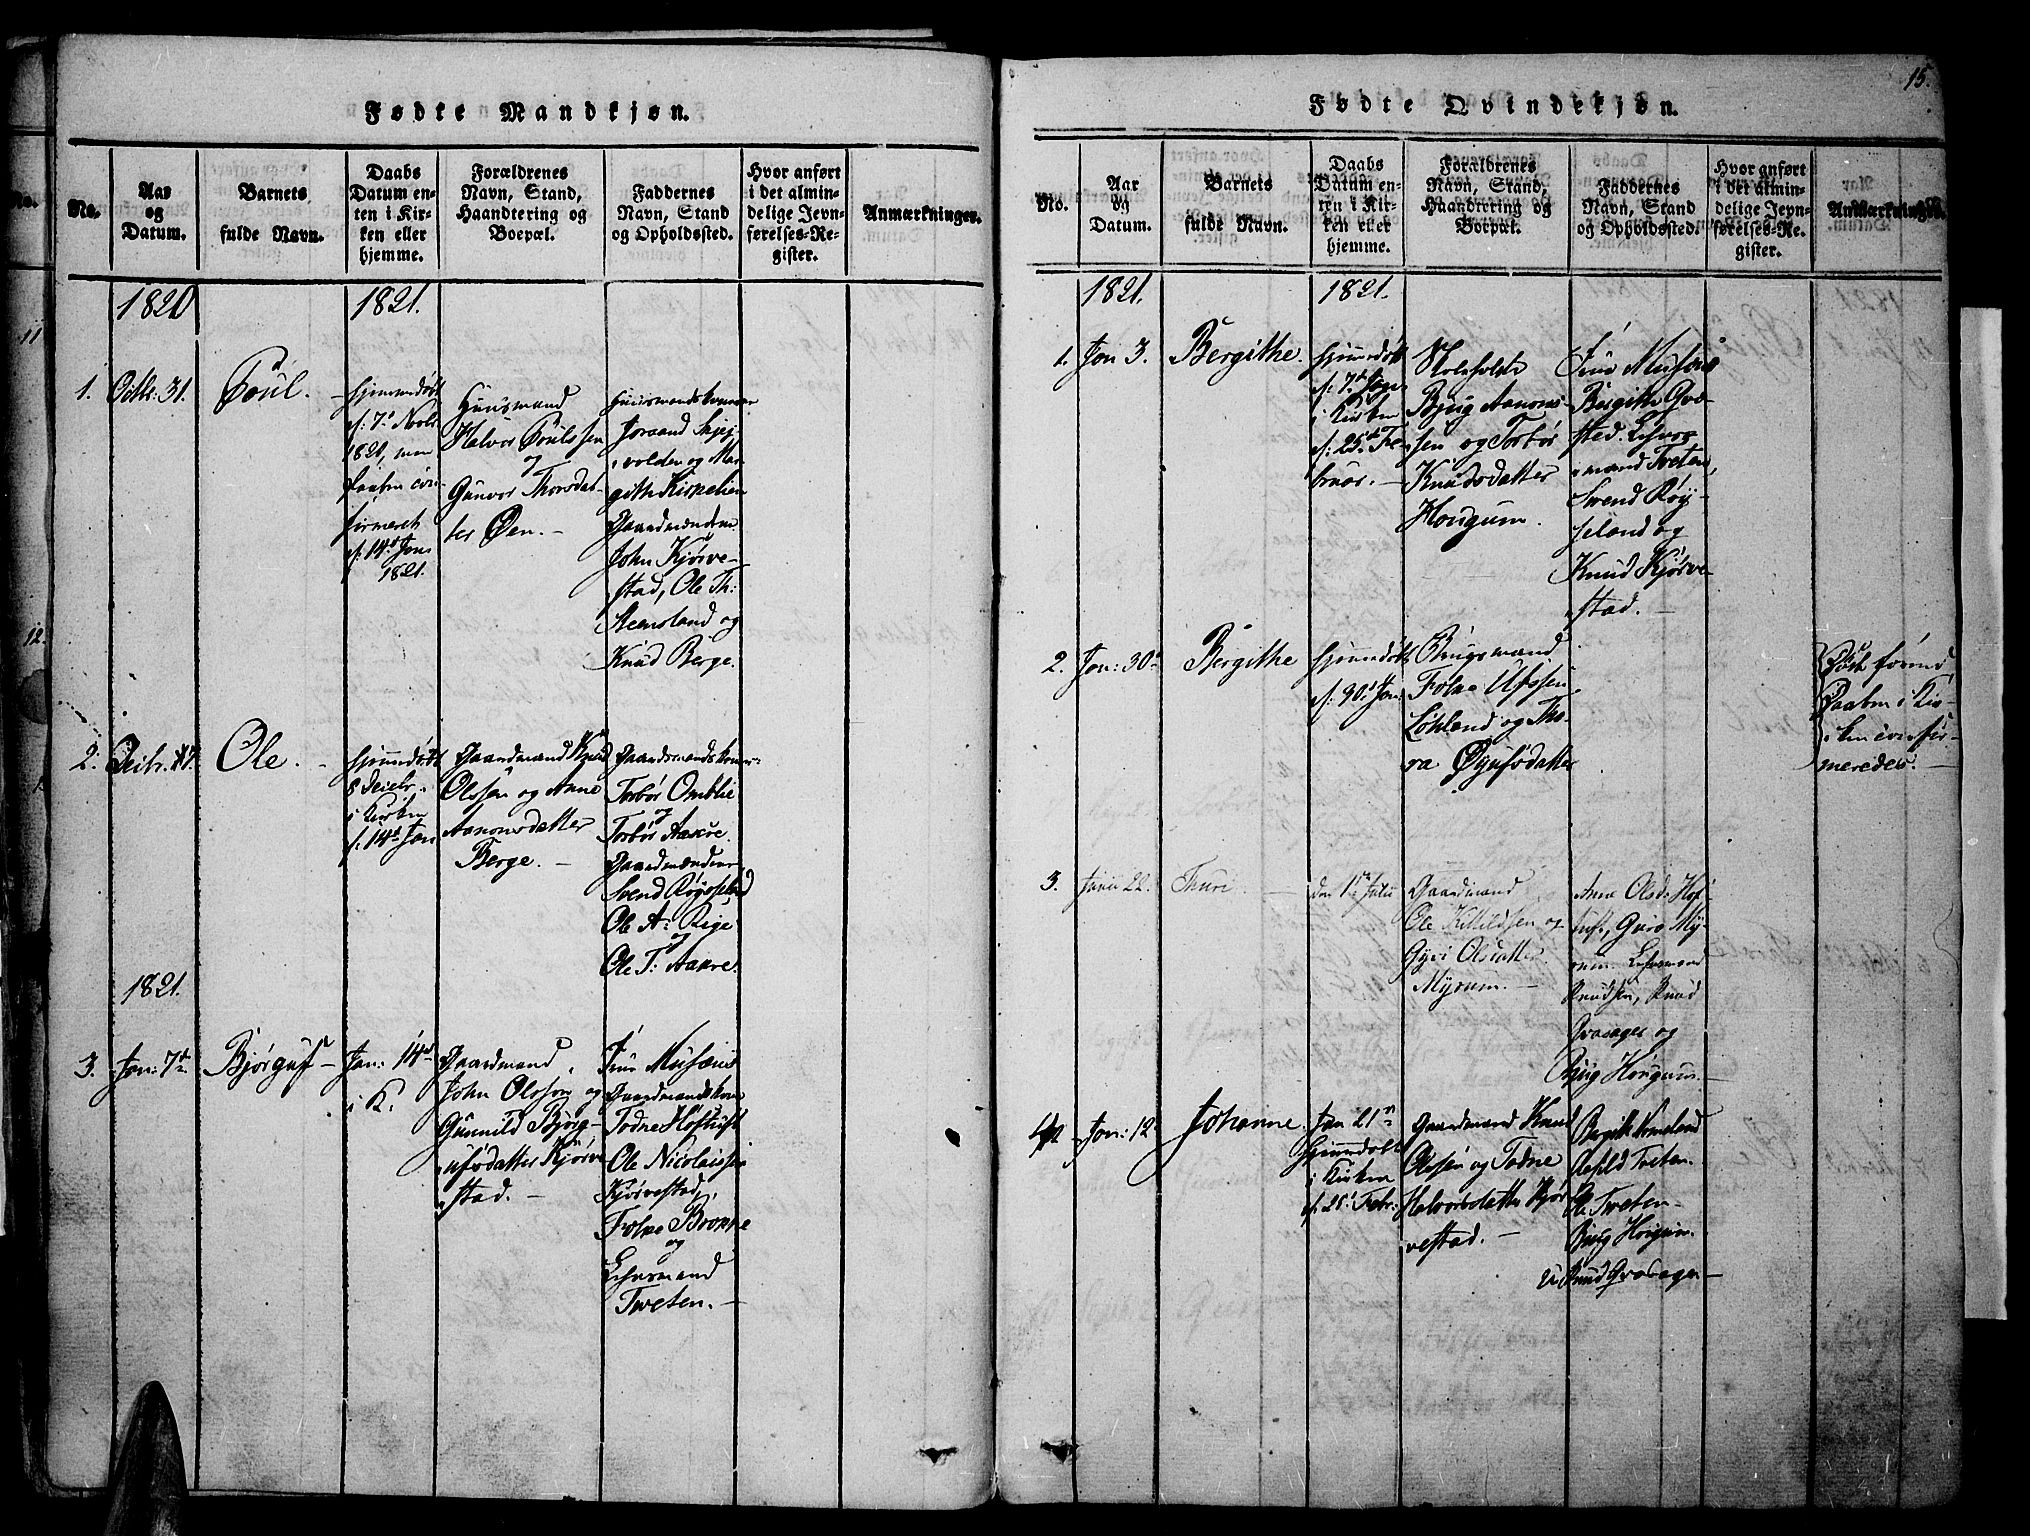 Fødte Mandkjøn.
No.
Aar
og
Datum.
Barnets
fulde Navn.
Daabs
Datum en-
ten i Kir-
ken eller
hjemme.
Forældrenes
Navn, Stand,
Haandtering og
Boepæl.
Faddernes
Navn, Stand
og Opholdssted.
Hvor anført
i det almin-
delige Jevn-
førelses-Re-
gister.
Anmærkninger.
1820
1821.
1. Octbr: 31.
Poul.
hjemmedøbt
d: 7de Novbr
1821, men
Daaben con-
firmeret
d: 14de Jan
1821.
Huusmand
Halvor Poulssen
og
Gunvor Thorsdat-
ter Øen.
Huusmandskonen
Joraand
volden og Mar-
githe Kirkelien
Gaardmændene
John Kjørve-
stad, Ole Th:
Steensland og
Knud Berge.
2. Decbr.
Ole.
hjemmedøbt
8 Decbr.
i Kirken
d. 14de Jan
Gaardmand Knud
Olssen og Anne
Aanonsdatter
Berge.
Gaardmandskoner
Torbør Omblie
og
Torbør Aakre.
Gaardmændene
Svend Røyseland
Ole A: Rige
og
Ole T: Aakre.
1821.
3. Jan: 7de
Bjørguf
Jan: 14de
i K.
Gaardmand
John Olsson og
Gunnild Bjørg-
ufsdatter Kjørve
stad.
Frue Musæus
Gaardmandskone
Todne Hoftuft
Ole Nicolaissen
Kjørvestad,
Folke Brokke
og
Lehnsmand
Tveten.
15.
Fødte Qvindekjøn.
No.
Aar
og
Datum.
Barnets
fulde Navn.
Daabs
Datum en-
ten i Kir-
ken eller
hjemme.
Forældrenes
Navn, Stand,
Haandtering og
Boepæl.
Faddernes
Navn, Stand
og Opholdssted.
Hvor anført
i det almin-
delige Jevn-
førelses-Re-
gister.
Anmærkninger.
1821.
1821.
1. Jan 3.
Bergithe.
hjemmedøbt
d: 7de
i Kirken
d: 25de Fe-
bruar.
Bjug Aanons-
sen og Torbør
Knudsdatter
Hougum.
Frue Musæus
Bergithe Qva-
sted. Lehns-
mand Tveten,
Svend Røy-
seland og
Knud Kjørve
stad.
2. Jan: 30te
Bergithe
hjemmedøbt
d: 30te Jan:
Brugsmand
Folke Ufssen
Løhland og Tho-
ra Øyufsdatter
Død førend
Daaben i Kir-
ken confir-
meredes.
3. Juni 22.
Thuri.
den 1ste Julii
Gaardmand
Ole Kittildsen og
Gyri Olsdatter
Myrum.
Anne Olsd: Hof-
tuft, Guro My-
rum. Lehnsmand
Knudsen, Knud
Qvasager og
Bjug Hougum.
4 Jan: 12
Johanne.
Jan 21de
hjemmedøbt
i Kirken
d. 25de Febr:
Gaardmand Knud
Olssen og Todne
Halvorsdatter Kjør
vestad.
Bergith
Aslild Tveten.
Ole Tveten
Bjug Hougum.
Knud Qvasager